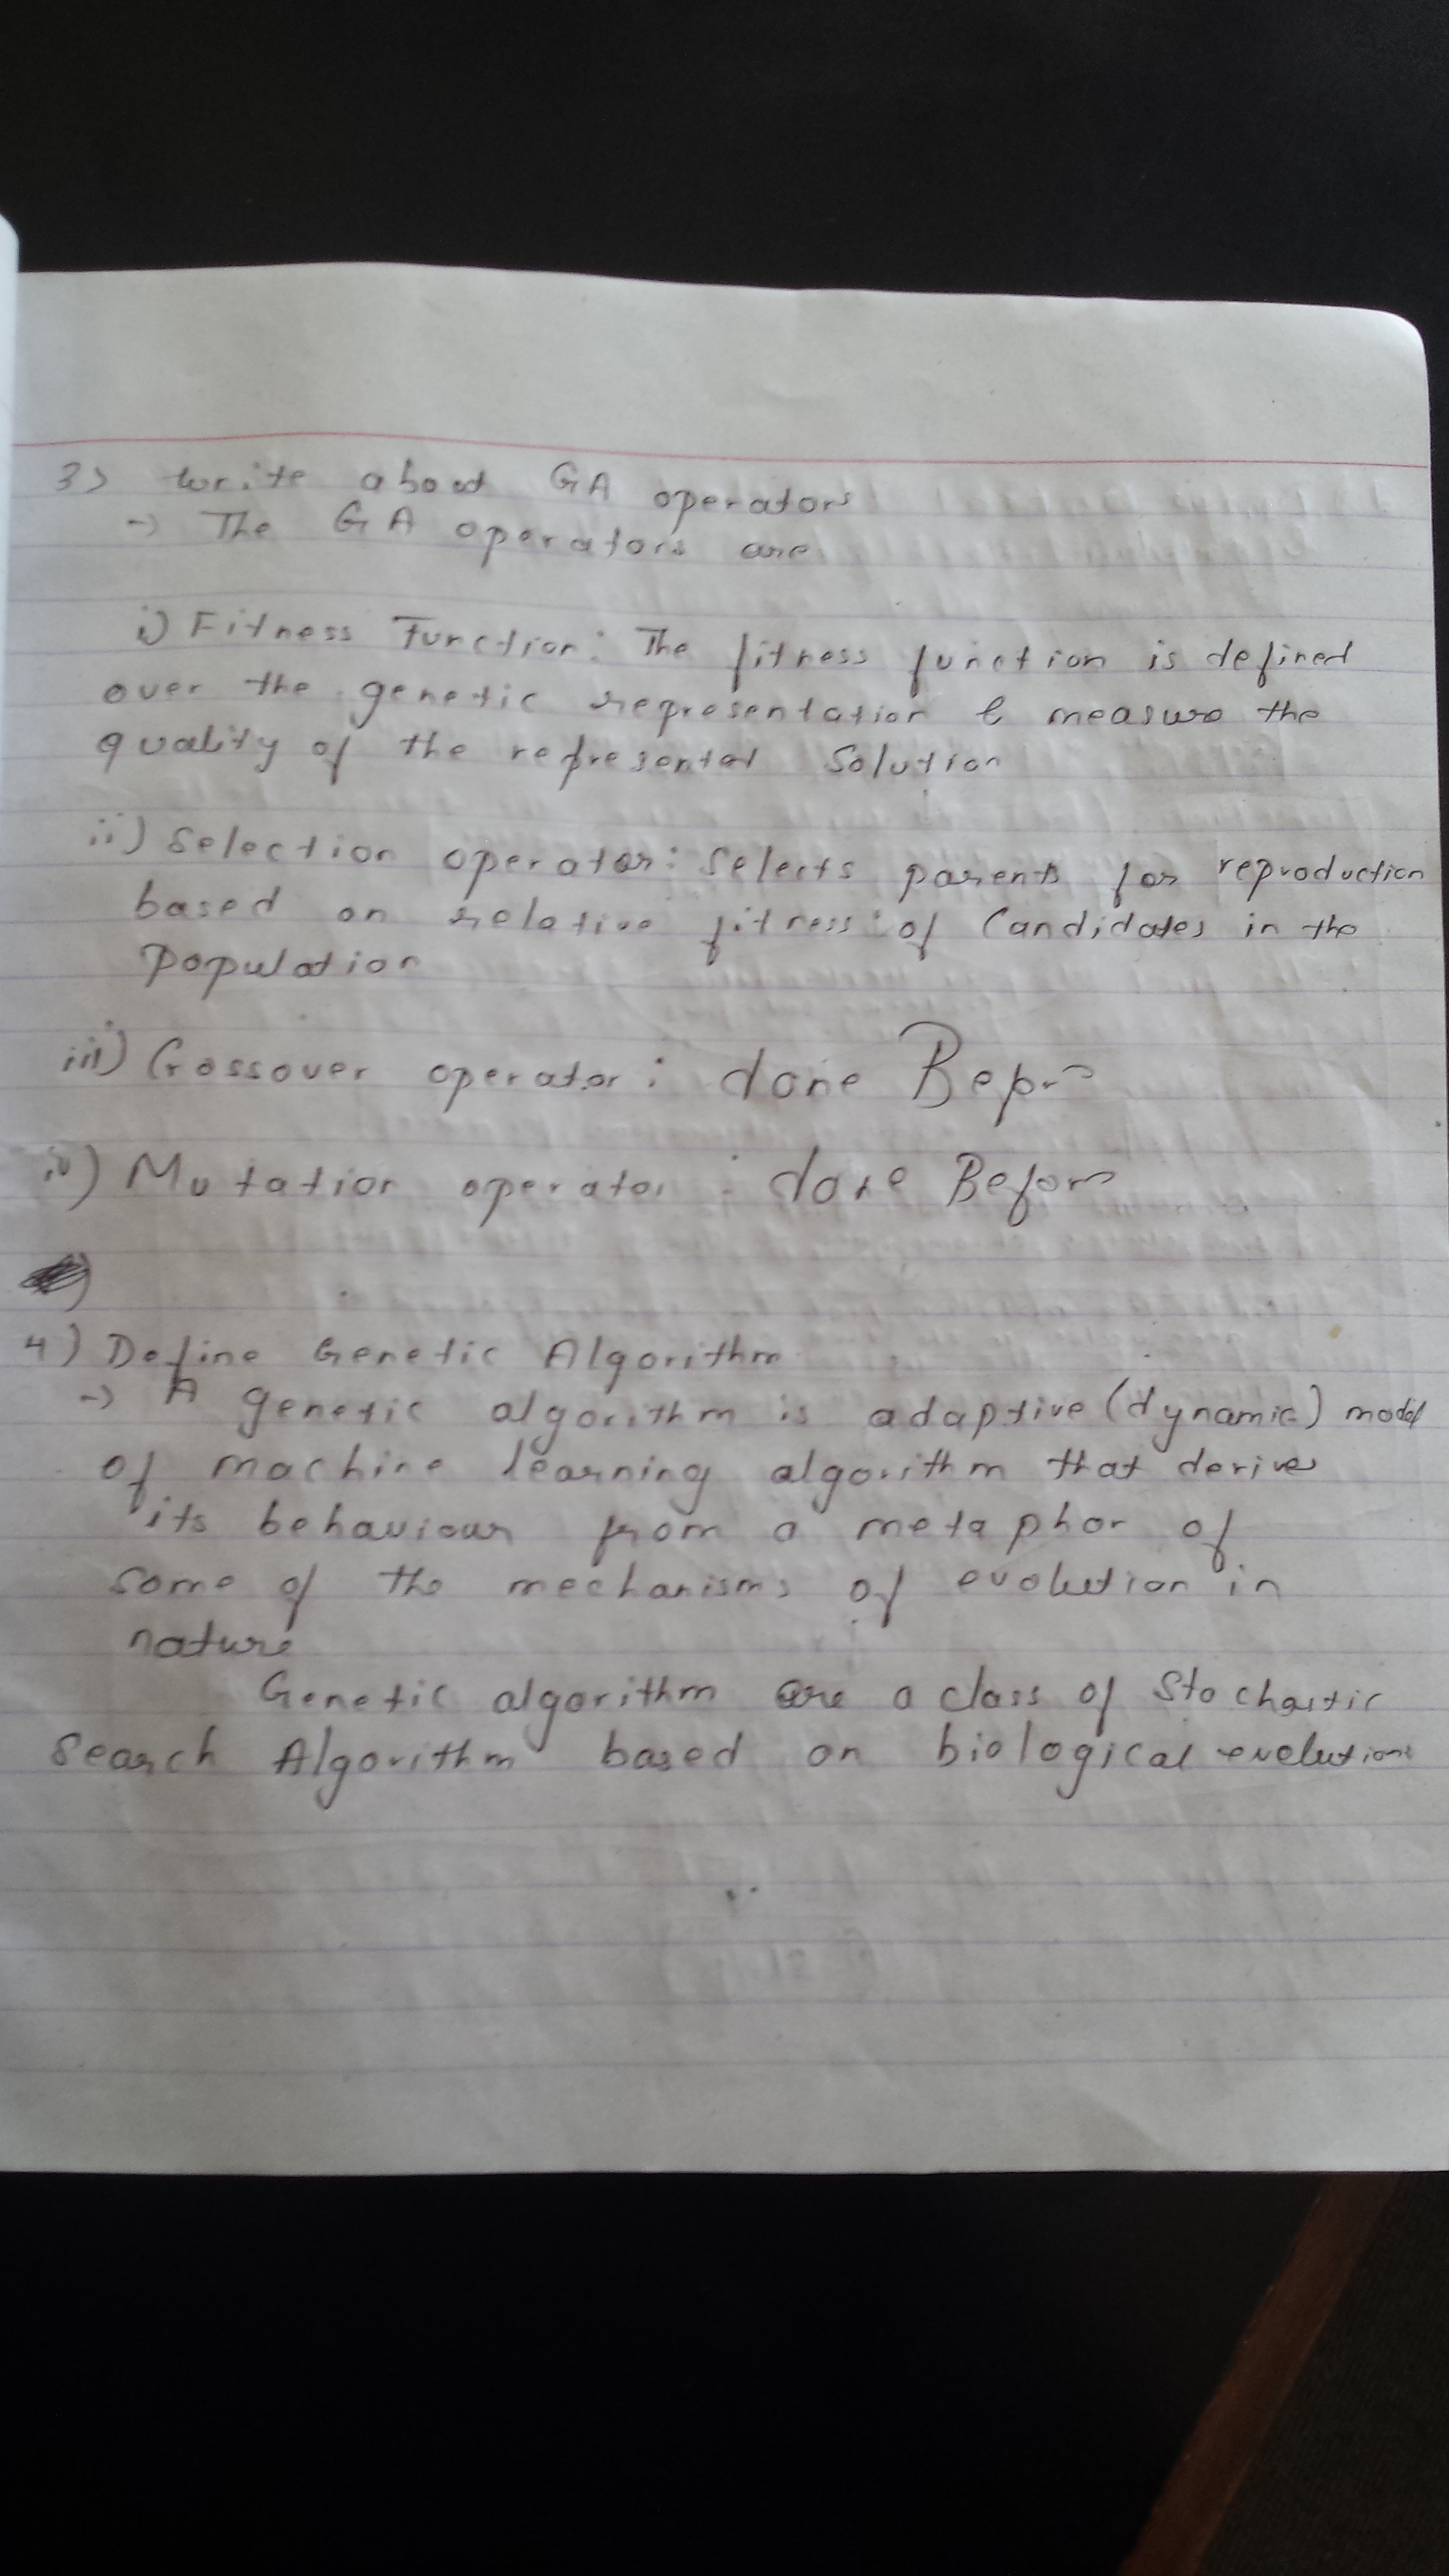 3) write about GA operators
→ The GA operators are
i) Fitness Function: The fitness function is defined
over the genetic representation & measure the
quality of the represental Solution
ii) Selection operator: Selects parents for reproduction
based on relative fitness of Candidates in the
population
iii) Crossover operator: done
iv) Mutation operator: done Before
4) Define Genetic Algorithm
→ A genetic algorithm is adaptive (dynamic) model
of machine learning algorithm that derives
its behaviour from a metaphor of
some of the mechanisms of evolution in
nature
Genetic algorithm are a class of Stochastic
Search Algorithm based on biological evolution